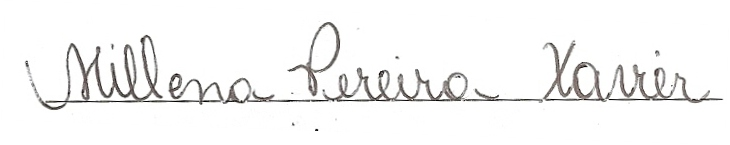 Millena Pereira Xavier